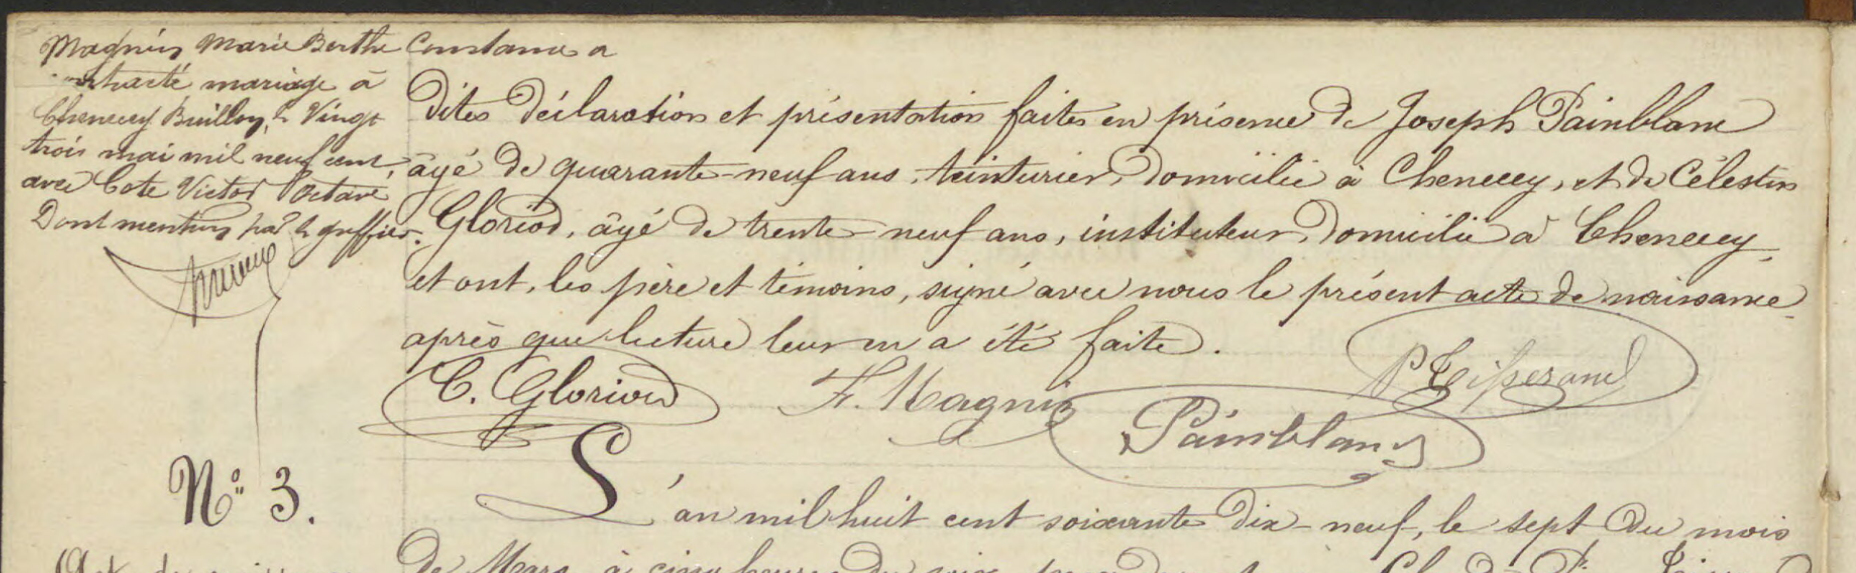 Magnin Marie Berthe Constance a
contracté mariage à
Chenecey Buillon, le Vingt
trois mai mil neuf cent,
avec Cote Victor Octave
Dont mention par le greffier.
dites déclaration et présentation faites en présence de Joseph Painblanc
âgé de quarante-neuf ans, teinturier, domicilié à Chenecey, et de Célestin
Gloriod, âgé de trente-neuf ans, instituteur, domicilié à Chenecey,
et ont, les père et témoins, signé avec nous le présent acte de naissance
après que lecture leur en a été faite.
C. Gloriod F. Magnin Painblanc P Tisserand
N° 3.
L'an mil huit cent soixante dix-neuf, le sept du mois
de Mars, à cinq heures du soir